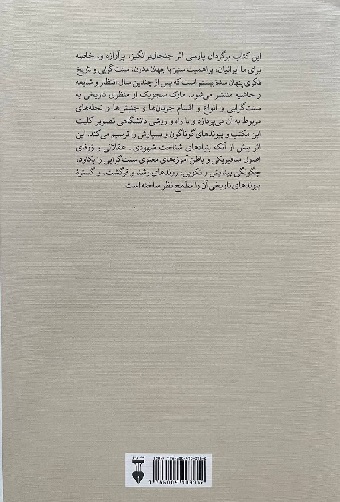 این کتاب برگردان پارسی اثر جنجال‌برانگیز، پرآوازه و، خاصه
برای ما ایرانیان، پراهمیت ستیز با جهان مدرن، سنت‌گرایی و تاریخ
فکری پنهان سده بیستم است که پس از چندین سال انتظار و شایعه
و حاشیه منتشر می‌شود. مارک سجویک از منظری تاریخی به
سنت‌گرایی و انواع و اقسام جریان‌ها و جنبش‌ها و نحله‌های
مربوط به آن می‌پردازد و با راه و روشی دانشگاهی تصویر کلیت
این مکتب و پیوندهای گوناگون و بسیارش را ترسیم می‌کند. این
اثر بیش از آنکه بنیادهای شناخت شهودی ـ عقلانی و ژرفای
اصول متافیزیکی و باطن آموزه‌های معنوی سنت‌گرایی را بکاود،
چگونگی پیدایش و تکوین، روندهای رشد و بازگشت، و گسترۀ
پیوندهای تاریخی آن را مطمح نظر ساخته است.